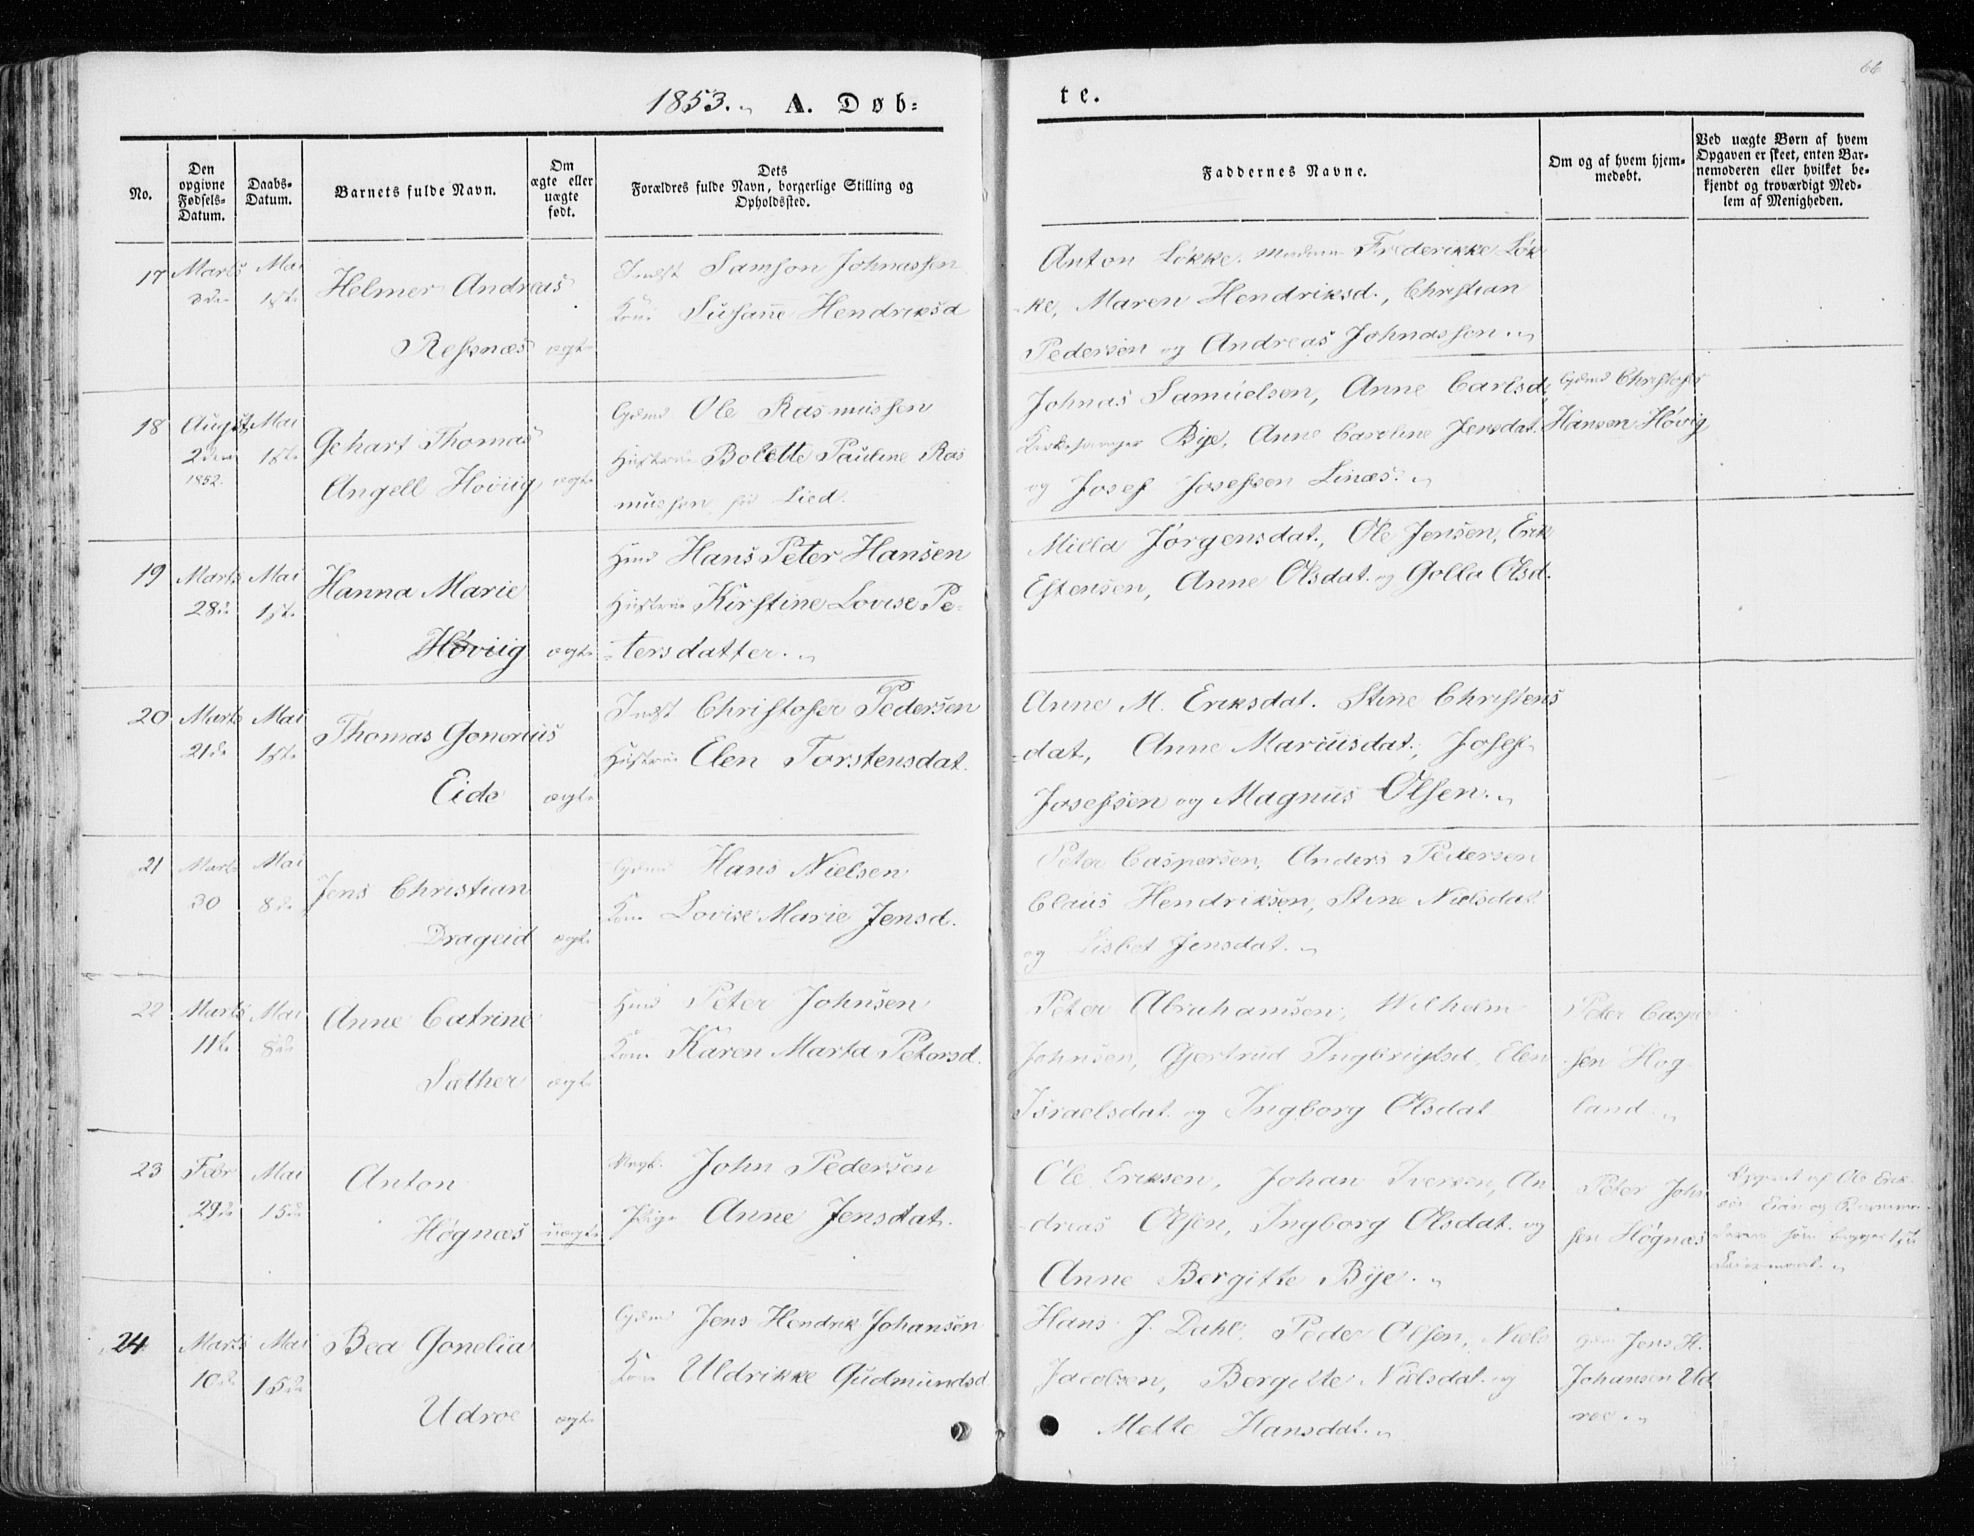 66
1853. A. Døb=
te.
No.
Den
opgivne
Fødsels-
Datum.
Daabs-
Datum.
Barnets fulde Navn.
Om
ægte eller
uægte
født.
Dets
Forældres fulde Navn, borgerlige Stilling og
Opholdssted.
Faddernes Navne.
Om og af hvem hjem-
medøbt.
Ved uægte Børn af hvem
Opgaven er skeet, enten Bar-
nemoderen eller hvilket be-
kjendt og troværdigt Med-
lem af Menigheden.
17 Marts Mai
1ste
Helmer Andreas
Ressnæs ægte
Indst Samson Johnassen
Kone Susanne Hendriksd
Anton Løkke. Madame Frederikke Løk
ke, Maren Hendriksd., Christian
Pedersen og Andreas Johnassen.
18 August Mai
2den 1ste
1852.
Gehart Thomas
Angell Høviig ægte
Gdmd Ole Rasmussen
Hustrue Bolette Pauline Ras
mussen født Lied.
Johnas Samuelsen, Anne Carlsd,
Kirkesanger Bye, Anne Caroline Jensdat.
og Josef Josefsen Linæs.
Gdmd Christofer
Hansen Høvig
19 Marts Mai
28de 1ste
Hanna Marie
Høviig ægte
Hmd Hans Peter Hansen
Hustrue Kirstine Lovise Pe-
tersdatter.
Milla Jørgensdat., Ole Jensen, Erik
Estensen, Anne Olsdat. og Golla Olsd.
20 Marts Mai
21de 1ste
Thomas Gonerius
Eide ægte
Indst Christofer Pedersen
Hustrue Elen Torstensdat.
Anne M. Eriksdat. Stine Christens
dat, Anne Marcusdat., Josef
Josefsen og Magnus Olsen.
21 Marts Mai
30 8de
Jens Christian
Drageid ægte
Gdmd Hans Nielsen
Kone Lovise Marie Jensd.
Peter Caspersen, Anders Pedersen
Claus Hendriksen, Stine Nielsdat
og Lisbet Jensdat.
22 Marts Mai
11te 8de
Anne Catrine
Sæther ægte
Hmd Peter Johnsen
Kone Karen Marta Petersd.
Peter Abrahamsen, Wilhelm
Johnsen, Gjertrud Ingbrigtsd, Elen
Israelsdat. og Ingborg Olsdat
Peter Casper
sen Hog
land.
23 Febr Mai
29de 15de
Anton
Høgnæs uægte
Ungk. John Pedersen
Pige Anne Jensdat.
Ole Eriksen, Johan Iversen, An
dreas Olsen, Ingborg Olsdat. og
Anne Bergitte Bye.
Peter John
sen Høgnæs
Opgivet af Ole Erik-
sen Eide og Barnemo-
deren som begges 1ste
Leiermaal.
24 Marts Mai
10de 15de
Bea Gonelia
Udroe ægte
Gdmd Jens Hendrik Johansen
Kone Uldrikke Gudmundsd
Hans J. Dahl, Peder Olsen, Niels
Jacobsen, Bergitte Nielsdat. og
Mette Hansdat.
Gdmd Jens H.
Johansen Ud
roe.